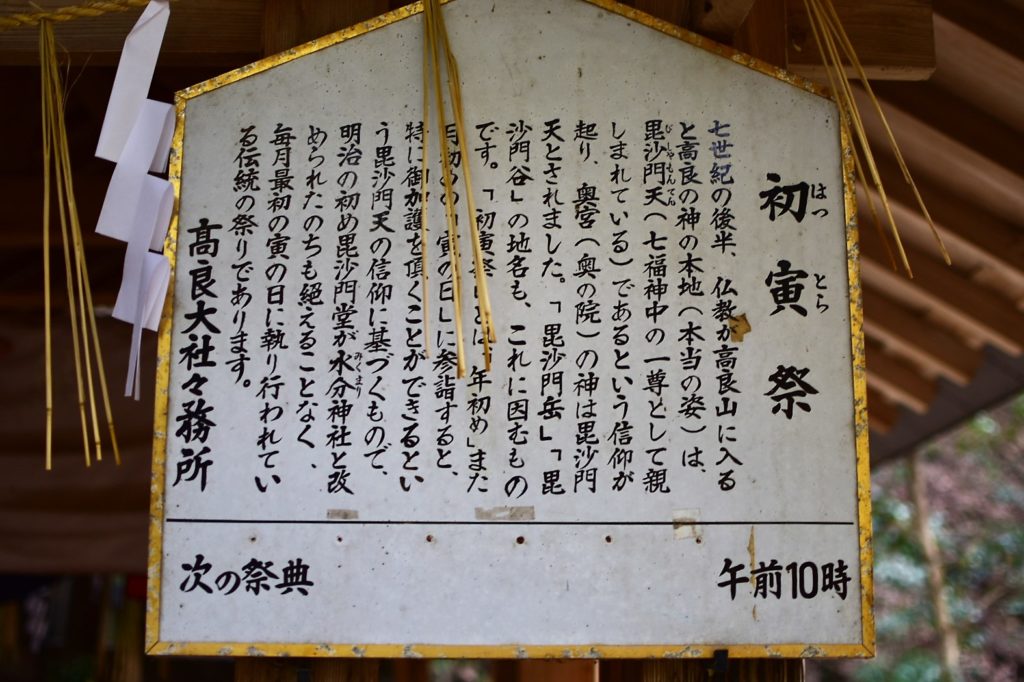 初寅祭
はつ とら
七世紀の後半、仏教が高良山に入る
と高良の神の本地(本当の姿)は、
毘沙門天(七福神中の一尊として親
びしゃもんてん
しまれている)であるという信仰が
起り、奥宮(奥の院)の神は毘沙門
天とされました。「毘沙門岳」「毘
沙門谷」の地名も、これに因むもの
です。「初寅祭」とは「年初め」また
月初めの「寅の日」に参詣すると、
特に御加護を頂くことができるとい
う毘沙門天の信仰に基づくもので、
明治の初め毘沙門堂が水分神社と改
みくまり
められたのちも絶えることなく、
毎月最初の寅の日に執り行われてい
る伝統の祭りであります。
高良大社々務所
次の祭典
午前10時